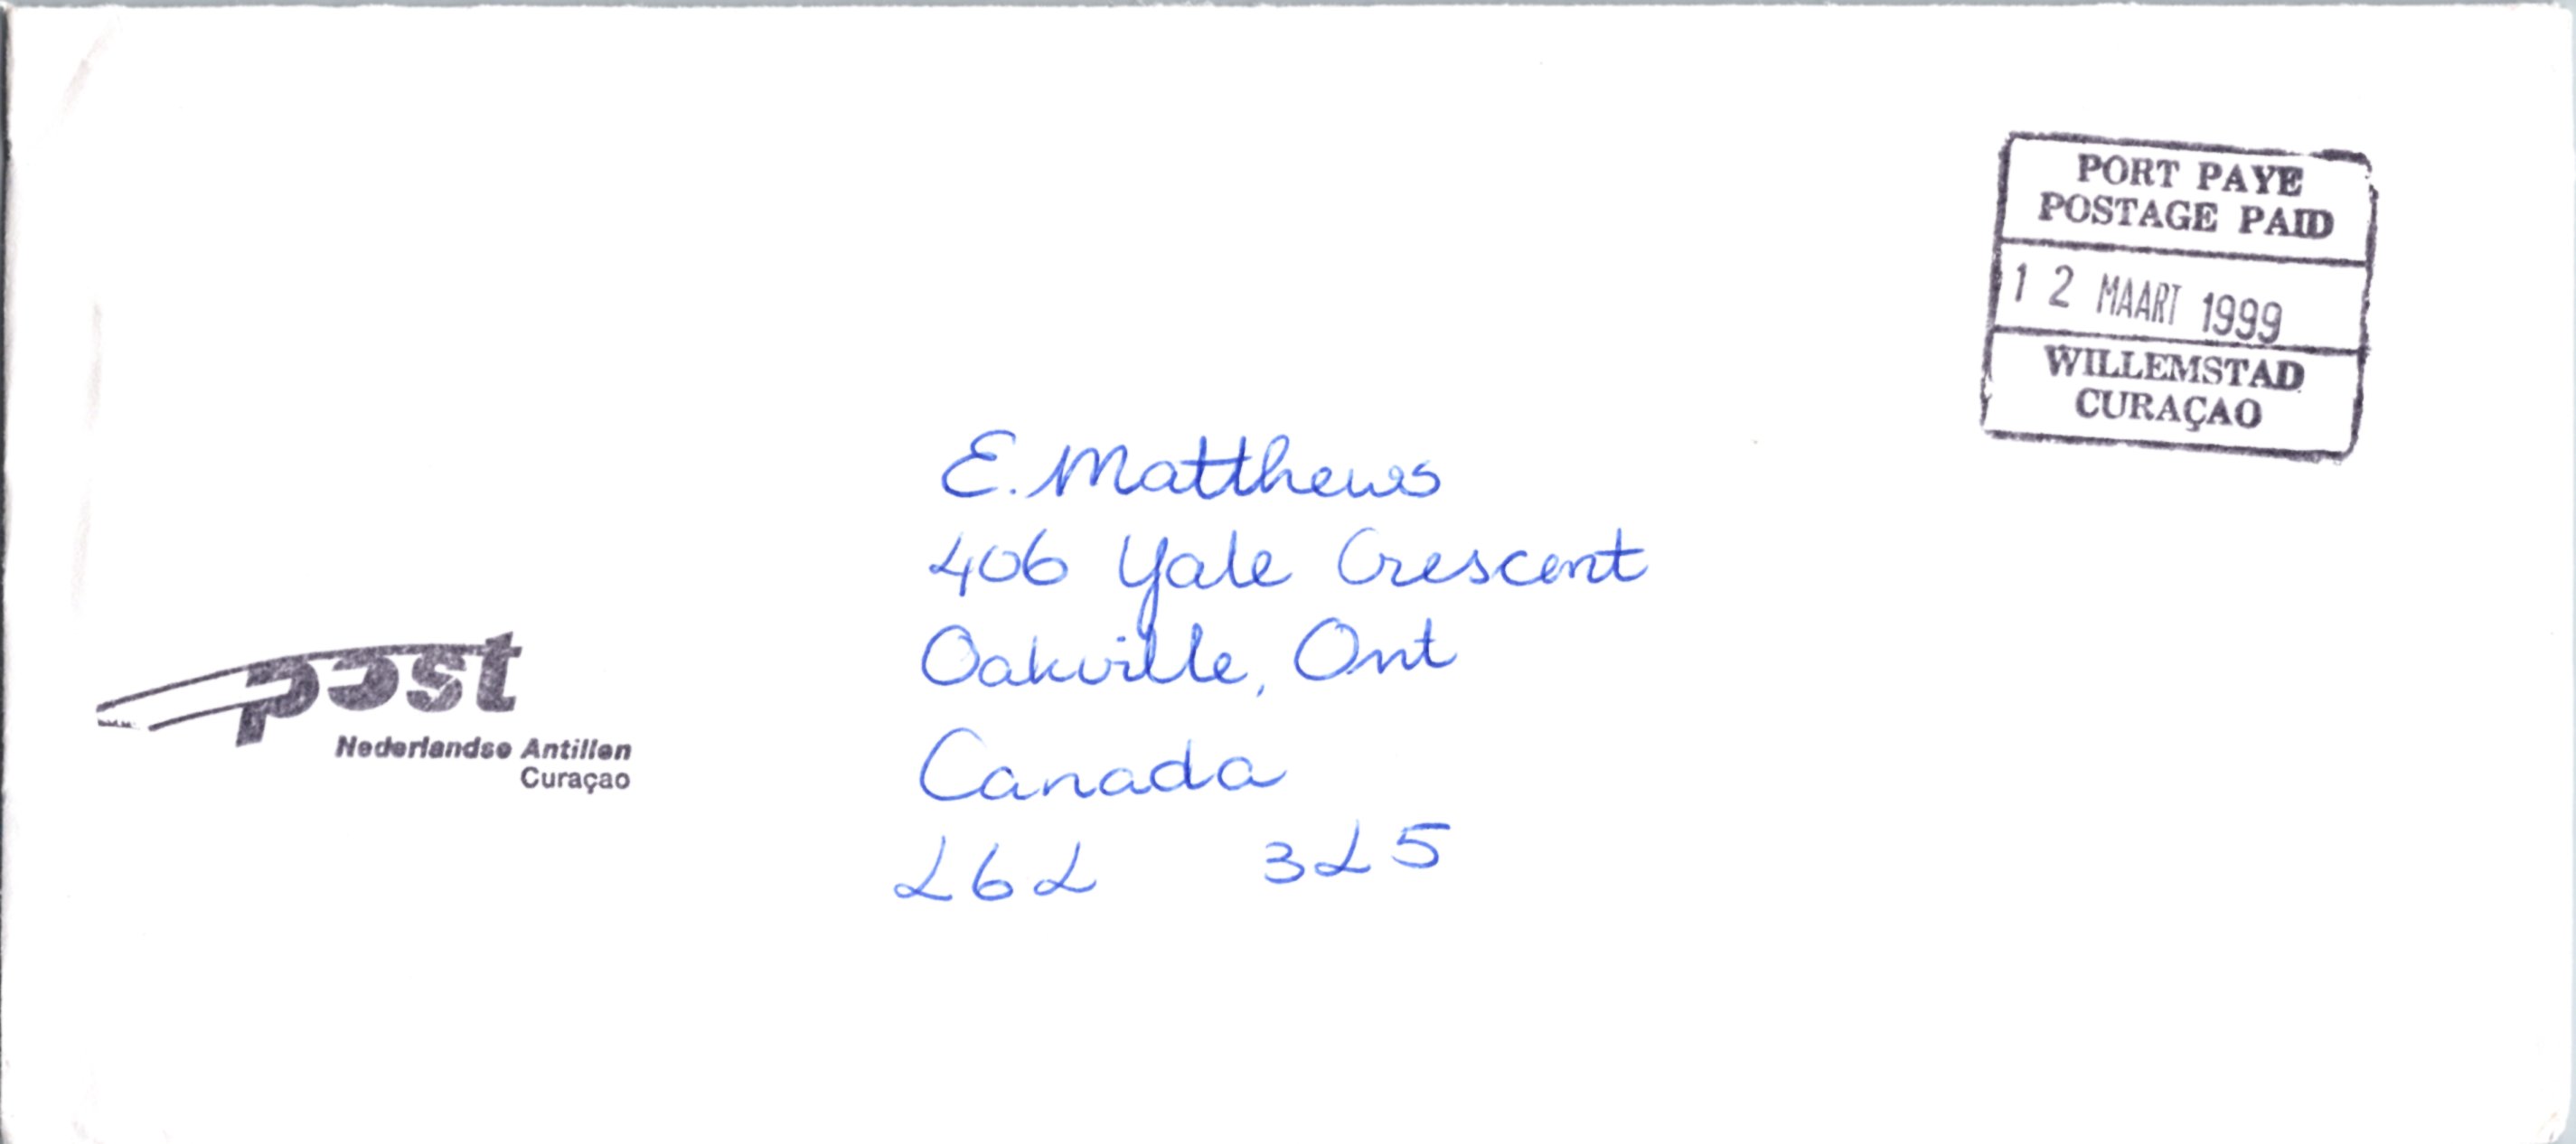 PORT PAYE
POSTAGE PAID
12 MAART 1999
WILLEMSTAD
CURAÇAO
E. Matthews
406 Yale Crescent
Oakville, Ont
Canada
L6L 3L5
post
Nederlandse Antillen
Curaçao